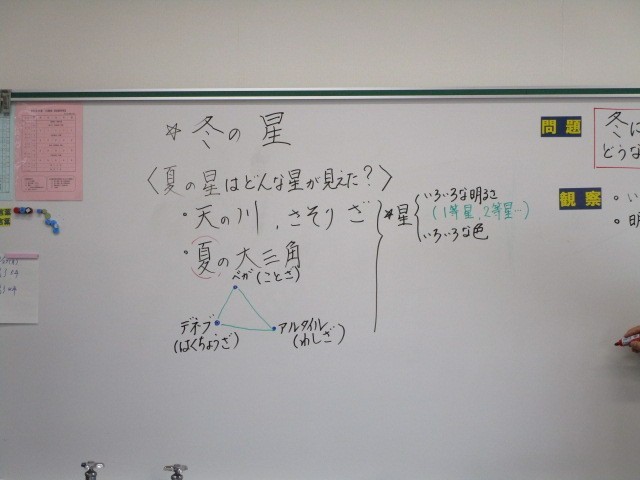 *冬の星
<夏の星はどんな星が見えた?>
・天の川、さそりざ
・夏の大三角
ベガ(ことざ)
デネブ
(はくちょうざ)
アルタイル
(わしざ)
*星
いろいろな明るさ
(1等星、2等星…)
いろいろな色
問題
冬に
どうな
観察
・い
・明